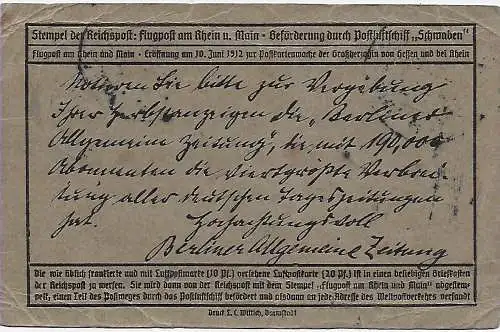 Stempel der Reichspost: Flugpost am Rhein u. Main - Beförderung durch Postluftschiff „Schwaben“
Flugpost am Rhein und Main - Eröffnung am 10. Juni 1912 zur Postkartenwoche der Großherzogin von Hessen und bei Rhein
Notieren Sie bitte zur Vergebung
Ihrer Herbstanzeigen die „Berliner
Allgemeine Zeitung“, die mit 190,000
Abonnenten die viertgrößte Verbrei-
tung aller deutschen Tageszeitungen
hat.
Hochachtungsvoll
Berliner Allgemeine Zeitung
Die wie üblich frankierte und mit Luftpostmarke (10 Pf.) versehene Luftpostkarte (20 Pf.) ist in einen beliebigen Briefkasten
der Reichspost zu werfen. Sie wird dann von der Reichspost mit dem Stempel „Flugpost am Rhein und Main“ abgestem-
pelt, einen Teil des Postweges durch das Postluftschiff befördert und alsdann an jede Adresse des Weltpostverkehrs versandt
Druck L. C. Wittich, Darmstadt